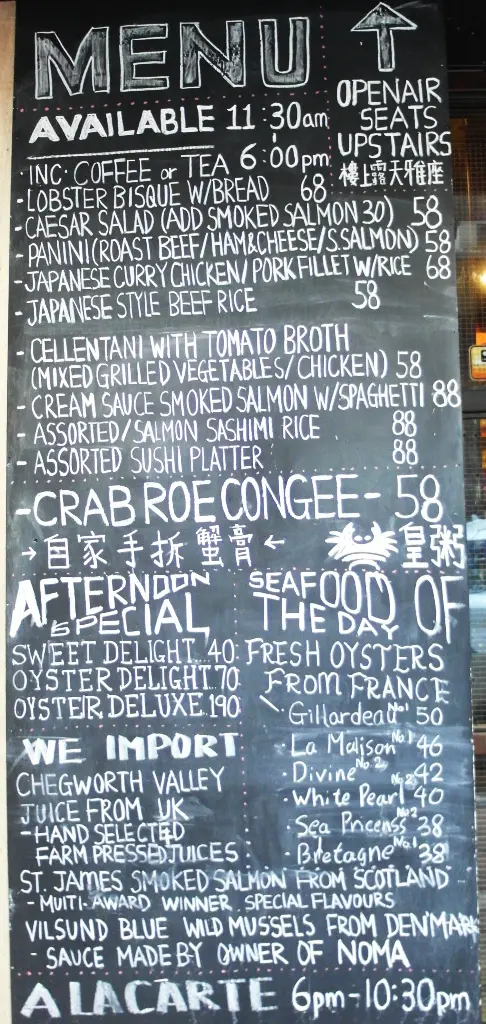 MENU
↑
OPENAIR
SEATS
UPSTAIRS
樓上露天雅座
AVAILABLE 11:30am
6:00pm
- INC. COFFEE or TEA
- LOBSTER BISQUE W/BREAD 68
- CAESAR SALAD (ADD SMOKED SALMON 30) 58
- PANINI (ROAST BEEF/HAM&CHEESE/S.SALMON) 58
- JAPANESE CURRY CHICKEN/PORK FILLET W/RICE 68
- JAPANESE STYLE BEEF RICE 58
- CELLENTANI WITH TOMATO BROTH
(MIXED GRILLED VEGETABLES/CHICKEN) 58
- CREAM SAUCE SMOKED SALMON W/SPAGHETTI 88
- ASSORTED/SALMON SASHIMI RICE 88
- ASSORTED SUSHI PLATTER 88
- CRAB ROE CONGEE - 58
→ 自家手拆蟹膏 ← 皇粥
AFTERNOON
SPECIAL
SWEET DELIGHT...40
OYSTER DELIGHT 70
OYSTER DELUXE..190
SEAFOOD OF
THE DAY
FRESH OYSTERS
FROM FRANCE
\ Gillardeau No1 50
· La Malison No.1 46
· Divine No.2 42
· White Pearl No.2 40
· Sea Pricenss No2 38
· Bretagne No.1 38
WE IMPORT
CHEGWORTH VALLEY
JUICE FROM UK
- HAND SELECTED
FARM PRESSED JUICES
ST. JAMES SMOKED SALMON FROM SCOTLAND
- MULTI-AWARD WINNER SPECIAL FLAVOURS
VILSUND BLUE WILD MUSSELS FROM DENMARK
- SAUCE MADE BY OWNER OF NOMA
A LA CARTE 6pm-10:30pm